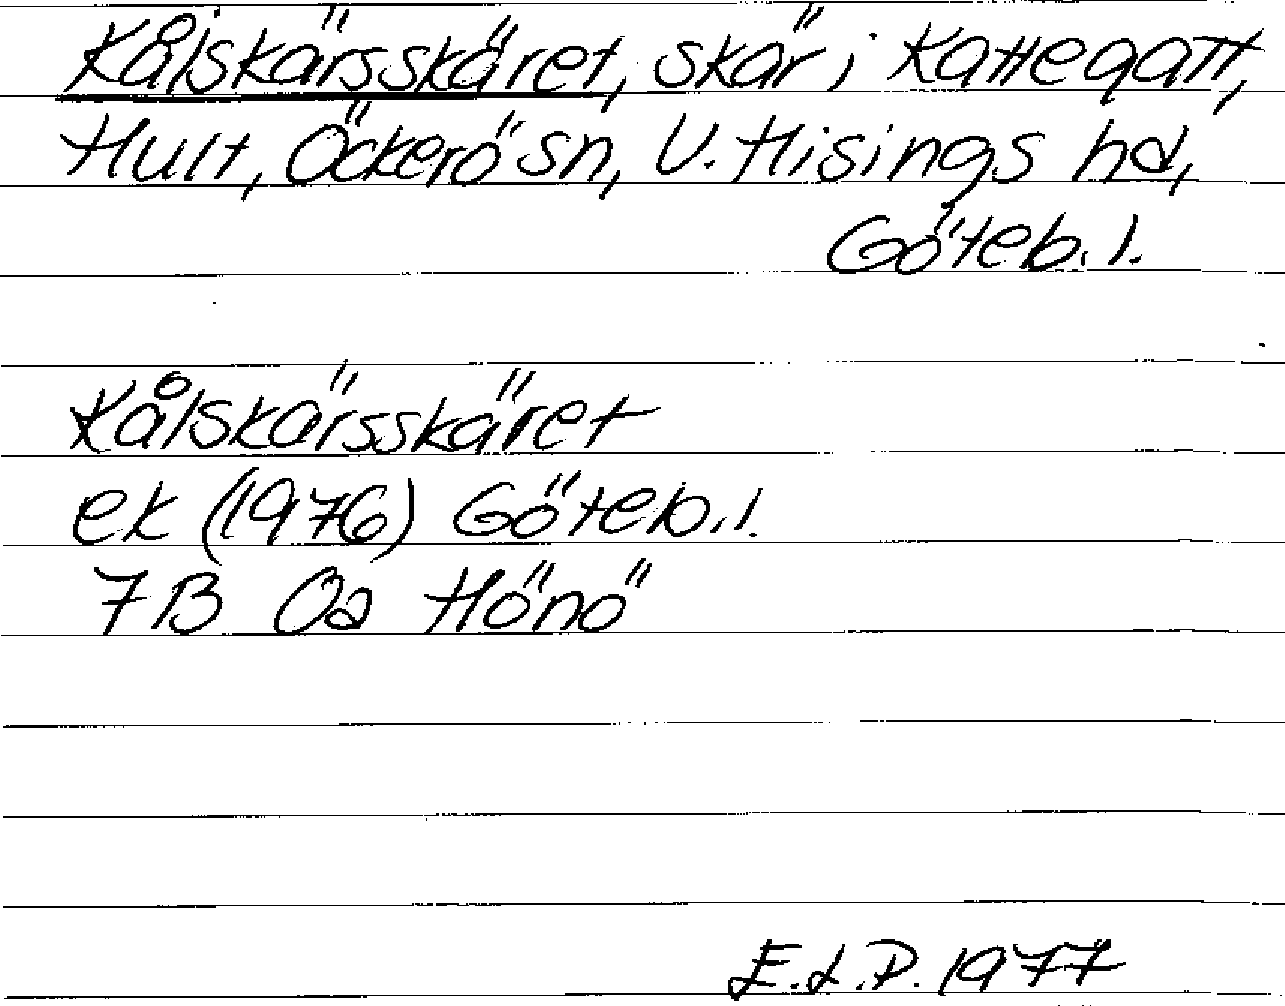 Kålskärsskäret, skär i Kattegatt,
Hult, Öckerö sn, V. Hisings hd,
Göteb. l.
Kålskärsskäret
ek (1976) Göteb. l.
7B 0a Hönö
E.L.P. 1977